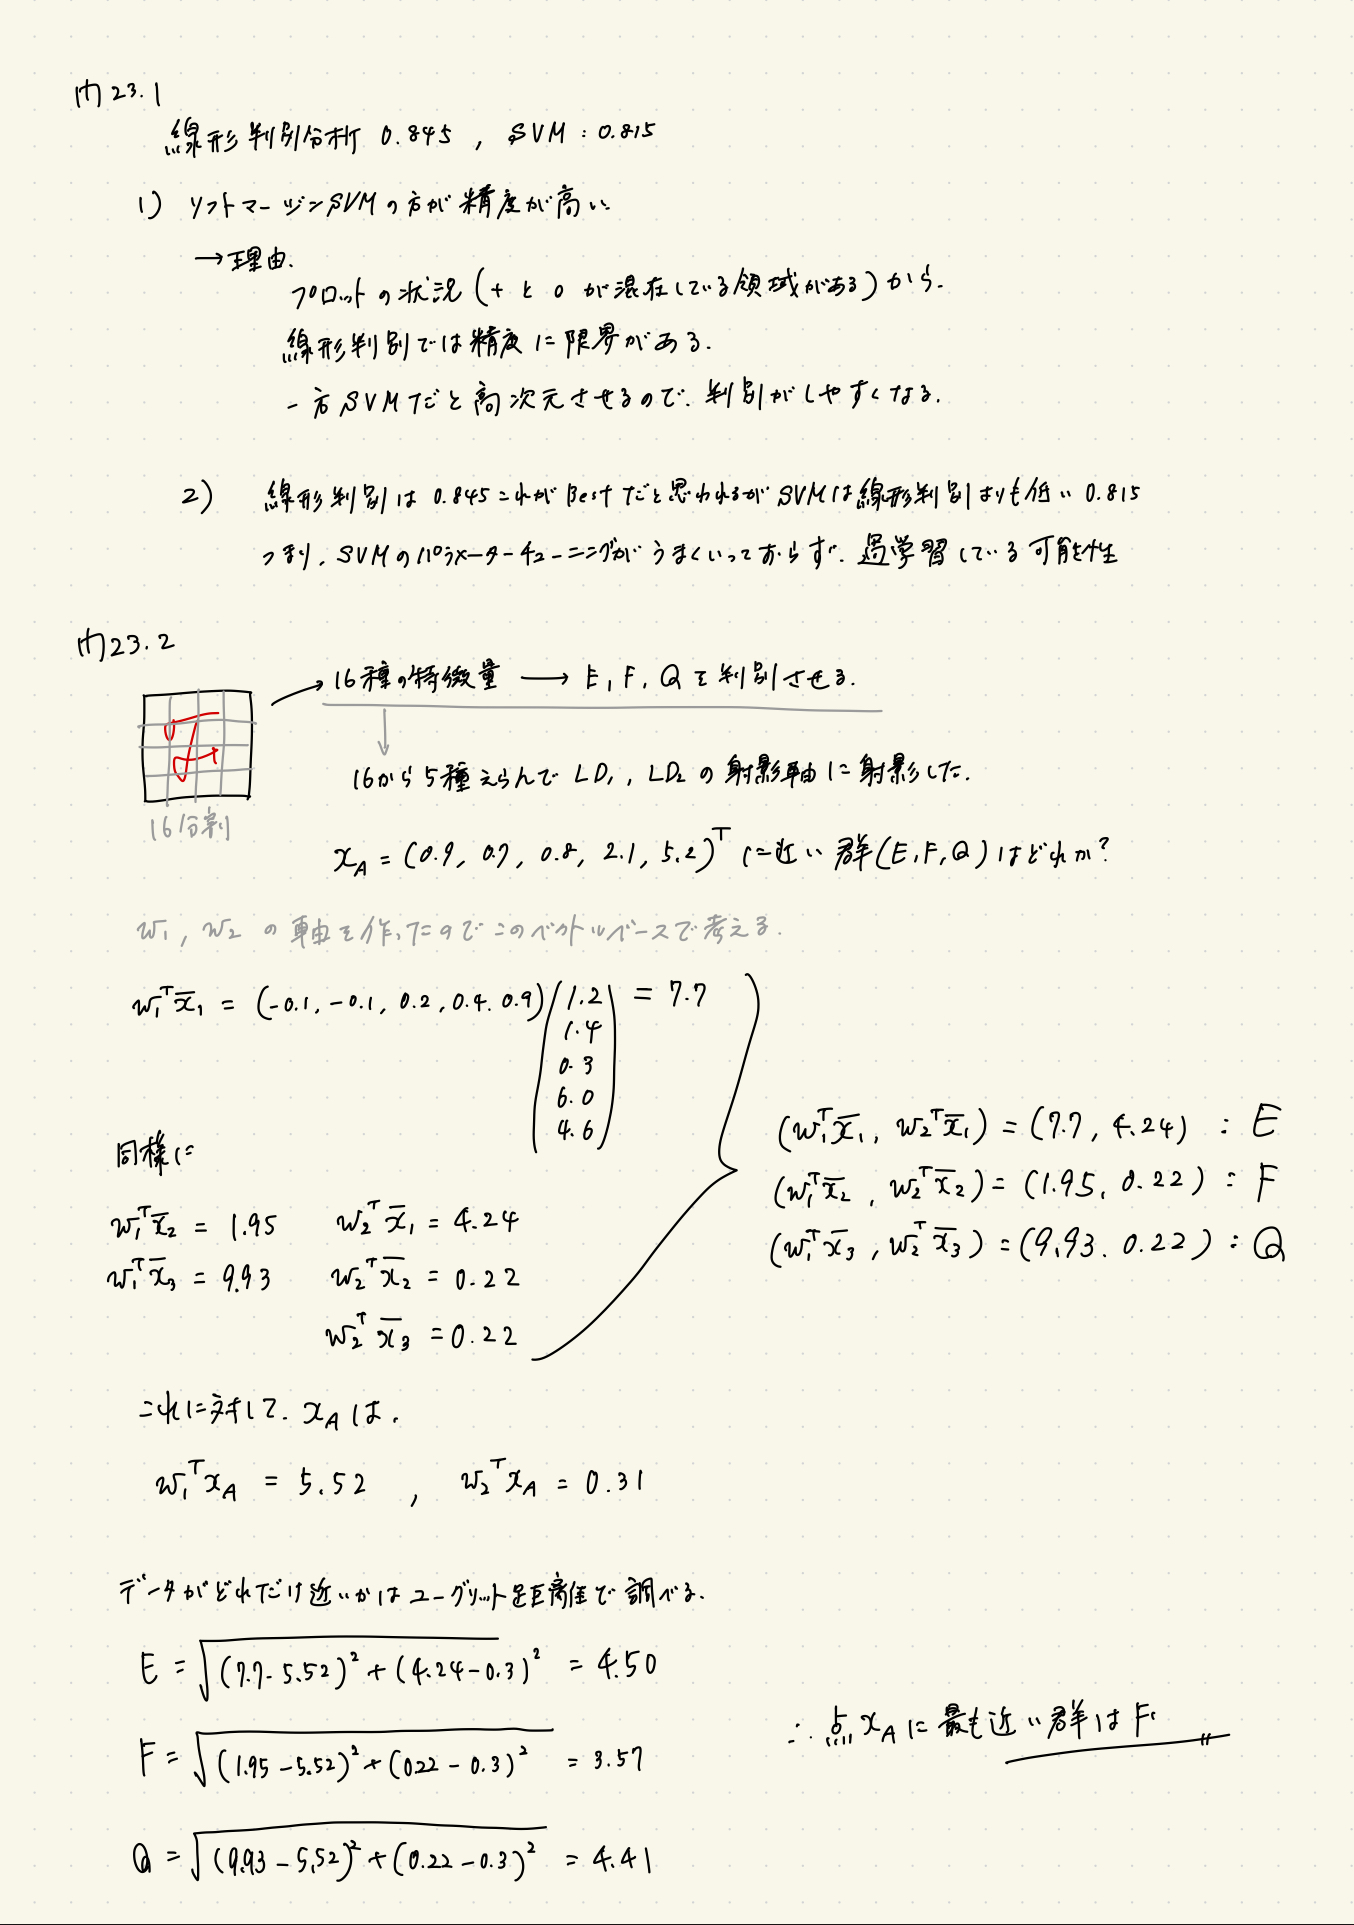 問23.1
線形判別分析 0.845 , SVM : 0.815
1) ソフトマージンSVMの方が精度が高い.
→理由.
プロットの状況 (+ と o が混在している領域がある) から.
線形判別では精度に限界がある.
一方SVMだと高次元させるので. 判別がしやすくなる.
2) 線形判別は 0.845 これがBestだと思われるがSVMは線形判別よりも低い 0.815
つまり. SVMのパラメーターチューニングがうまくいっておらず. 過学習している可能性
問23.2
16種の特徴量 → E, F, Q を判別させる.
16分割
16から5種えらんで LD₁, LD₂ の射影軸に射影した.
x_A = (0.9, 0.7, 0.8, 2.1, 5.2)^T に近い群(E,F,Q)はどれか?
w₁, w₂ の軸を作ったのでこのベクトルベースで考える.
w₁^T x̄₁ = (-0.1, -0.1, 0.2, 0.4. 0.9) (1.2 = 7.7
1.4
0.3
6.0
4.6)
同様に
w₁^T x̄₂ = 1.95 w₂^T x̄₁ = 4.24
w₁^T x̄₃ = 9.93 w₂^T x̄₂ = 0.22
w₂^T x̄₃ = 0.22
(w₁^T x̄₁, w₂^T x̄₁) = (7.7, 4.24) : E
(w₁^T x̄₂, w₂^T x̄₂) = (1.95, 0.22) : F
(w₁^T x̄₃, w₂^T x̄₃) = (9.93. 0.22) : Q
これに対して. x_A は.
w₁^T x_A = 5.52 , w₂^T x_A = 0.31
データがどれだけ近いかはユークリット距離で調べる.
E = √(7.7-5.52)² + (4.24-0.3)² = 4.50
F = √(1.95-5.52)² + (0.22-0.3)² = 3.57
Q = √(9.93-5.52)² + (0.22-0.3)² = 4.41
∴ 点x_Aに最も近い群はF